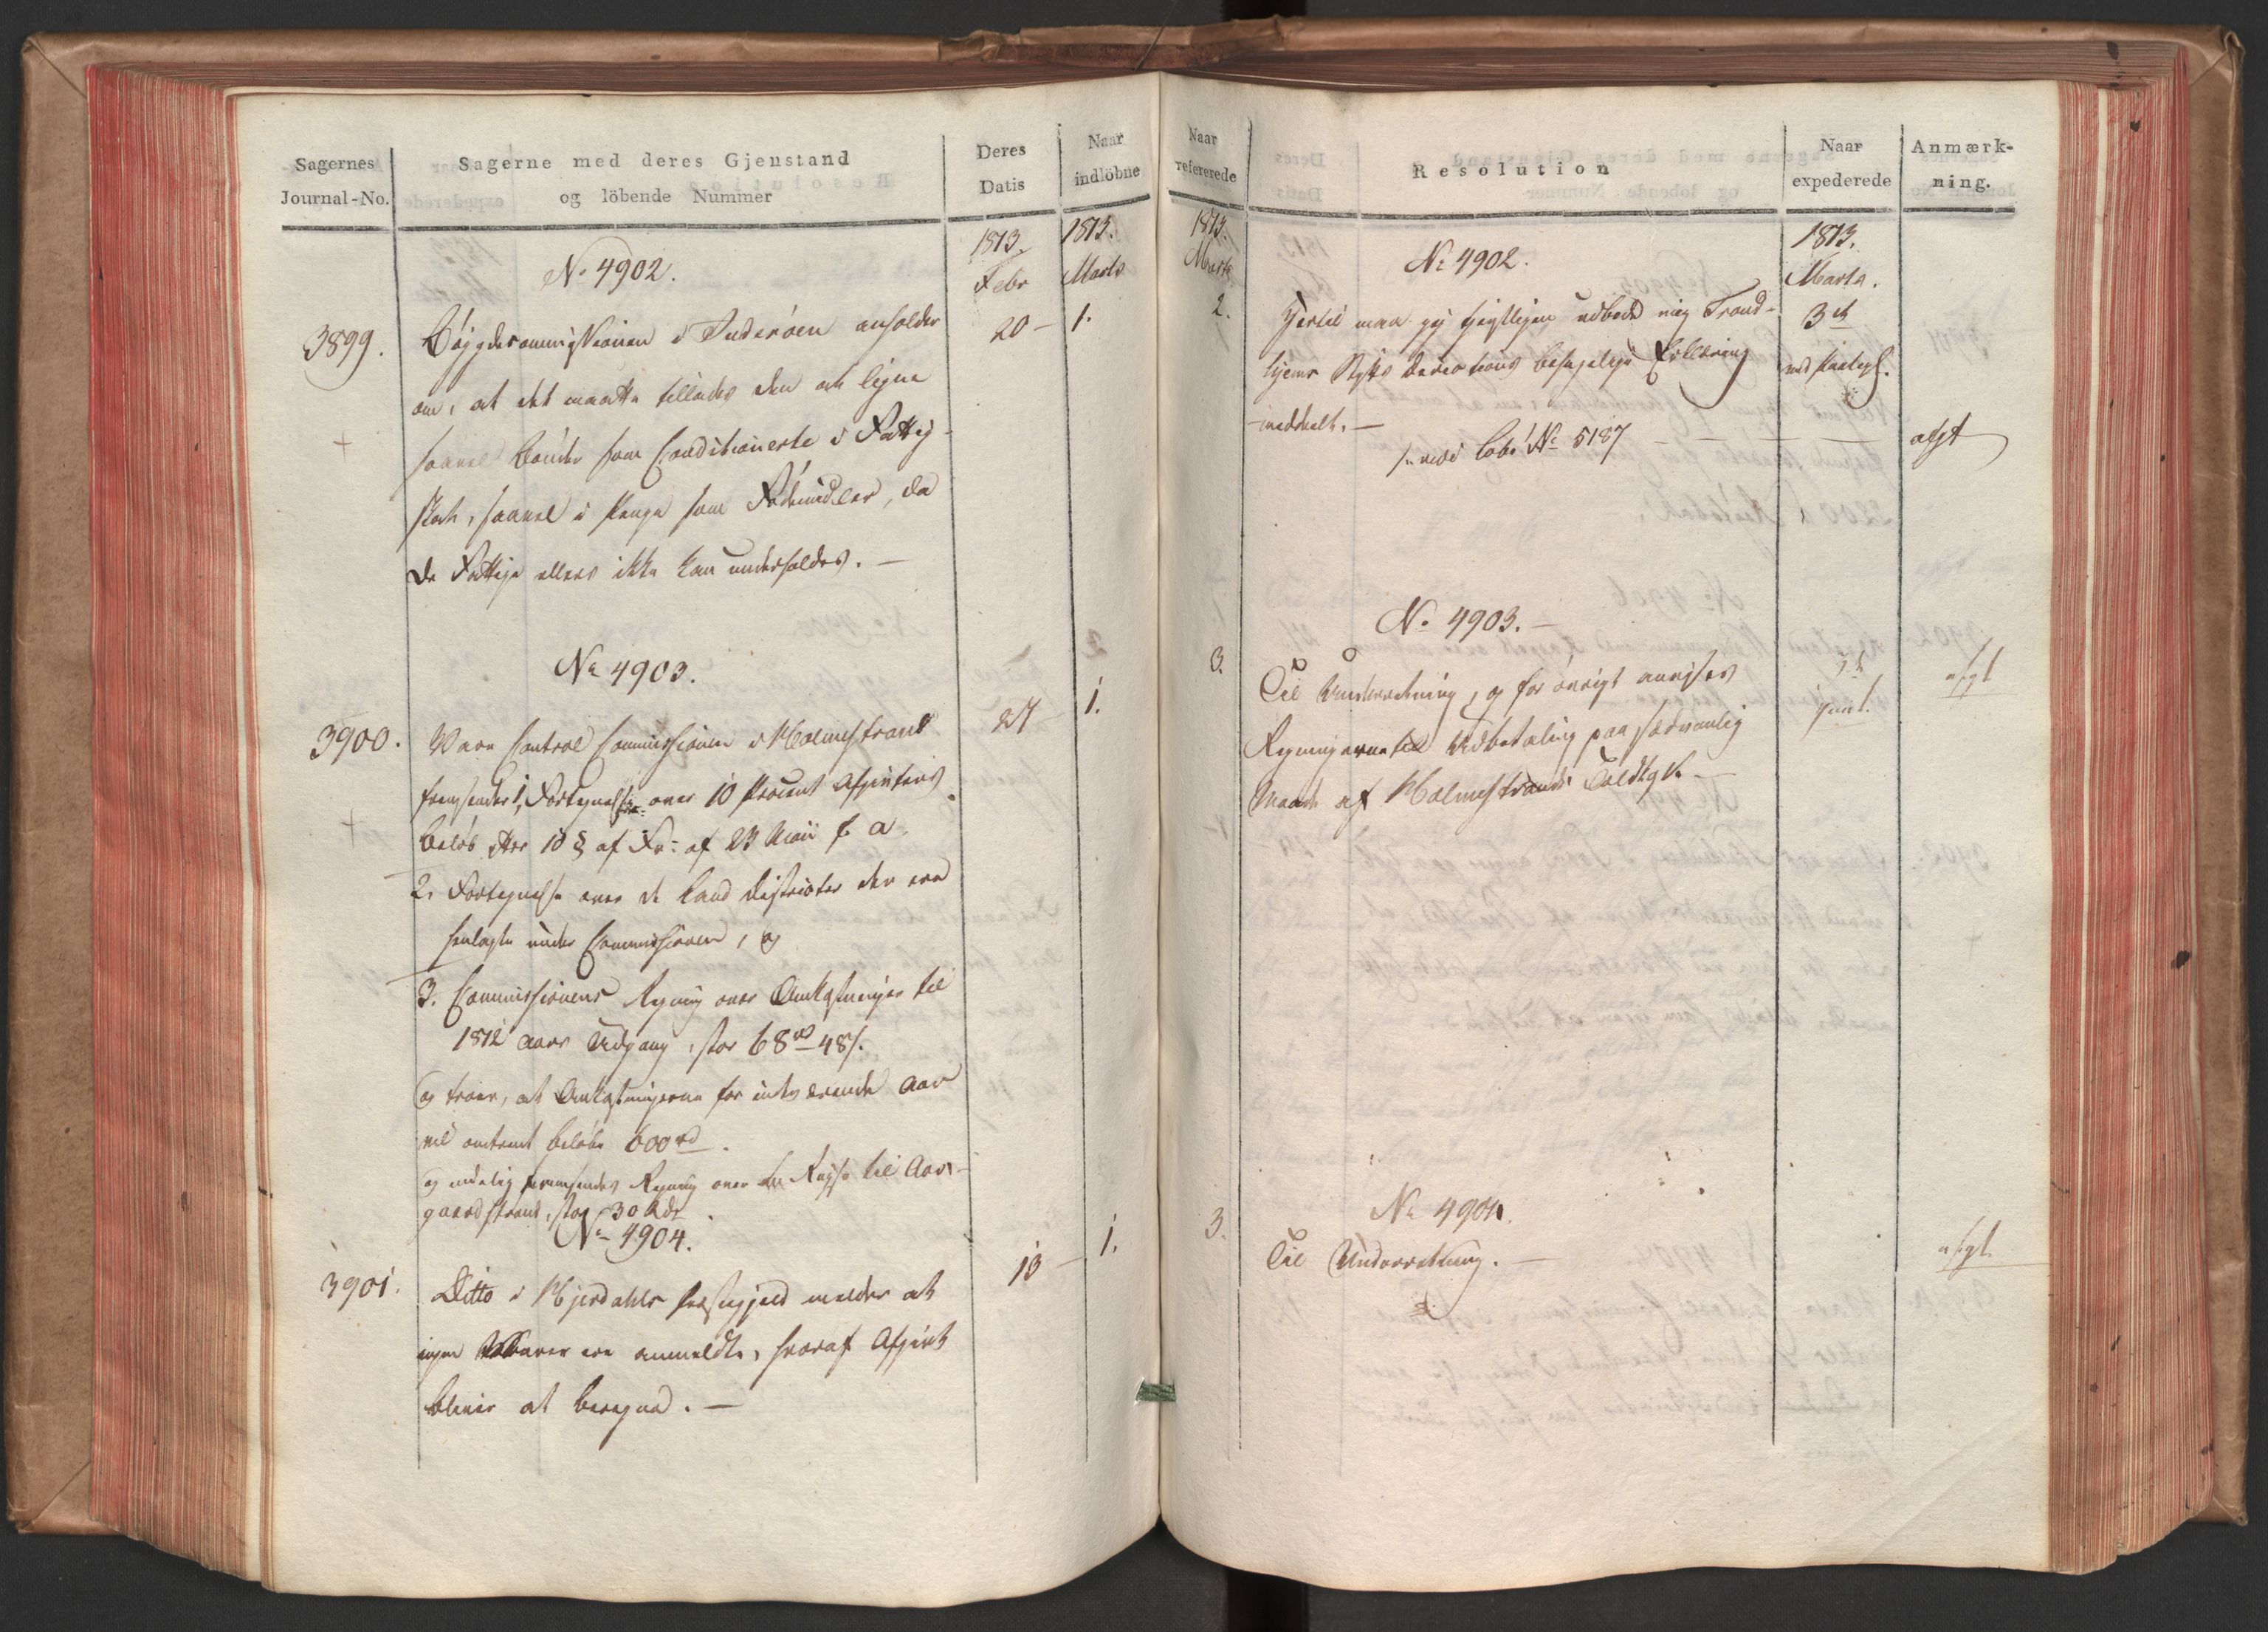 Sagernes
Journal-No.
Sagerne med deres Gjenstand
og löbende Nummer
Deres
Datis
Naar
indlöbne
1813.
Febr
1813.
Marts
No 4902.
3899.
Bøygdecommissionen i Inderøen anholder
20 –
1.
om, at det maatte tillades den at ligne
saavel Bønder som Conditionerte i Fattig-
skat, saavel i Penge som Fødemidler, da
de Fattige ellers ikke kan underholdes. –
No 4903.
3900.
Vare Control Commissionen i Holmestrand
27
1.
fremsender 1, Fortegnelse over 10 Procent Afgiftens
Beløb efter 10 § af Fr: af 23 Maii f. a.
2. Fortegnelse over de Land Districter der ere
henlagte under Commissionen, og
3. Commissionens Regning over Omkostninger til
1812 Aars Udgang, stor 68 rd 48 s.
og troer, at Omkostningerne for indeværende Aar
vil omtrent beløbe 600 rd.
og endelig fremsendes Regning over en Reyse til Aas-
gaardstrand, stor 30 Rdr
No 4904.
3901.
Ditto i Hjerdahls Præstegjeld melder at
13 –
1.
ingen Varer ere anmeldte, hvoraf Afgivt
bliver at beregne. –
Naar
refererede
Resolution
Naar
expederede
Anmærk-
ning.
1813.
Marts
1813.
Marts.
No 4902.
2.
Hertil maa jeg tjenstligen udbede mig Trond-
3d
hjems Stifts Directions behagelige Erklæring
ved Paategn.
meddeelt. –
vide Løbe No 5187 – – – –
afgt
No 4903. –
3.
Til Underretning, og for øvrigt anvises
afgt
Regningerne til Udbetaling paa sædvanlig
Maade af Holmestrands Toldkasse –
No 4904.
3.
Til Underretning. –
afgt